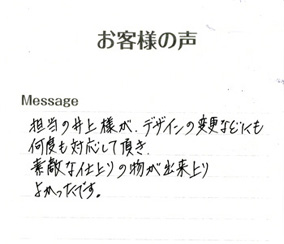 お客様の声
Message
担当の井上様が、デザインの変更などにも
何度も対応して頂き、
素敵な仕上りの物が出来上り
よかったです。